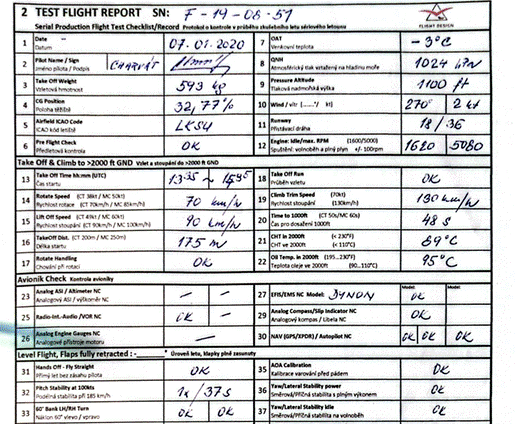 2 TEST FLIGHT REPORT SN: F-14-08-51
Serial Production Flight Test Checklist/Record Protokol o kontrole v průběhu zkušebního letu sériového letounu
FLIGHT DESIGN
1 Date — Datum 07.01.2020
7 OAT Venkovní teplota -3°C
2 Pilot Name / Sign Jméno pilota / Podpis
8 QNH Atmosférický tlak vztažený na hladinu moře 1024 hPa
3 Take Off Weight Vzletová hmotnost 593 kg
9 Pressure Altitude Tlaková nadmořská výška 1100 ft
4 CG Position Poloha těžiště 32,77%
10 Wind / vítr (......°/ kt) 270° 2 kt
5 Airfield ICAO Code ICAO kód letiště LKSU
11 Runway Přistávací dráha 18/36
6 Pre Flight Check Předletová kontrola OK
12 Engine: Idle/max. RPM (1600/5000) Spuštění: volnoběh a plný plyn +/- 100rpm 1620 5080
Take Off & Climb to >2000 ft GND Vzlet a stoupání do >2000 ft GND
13 Take Off Time hh:mm (UTC) Čas startu 13:35 ~
18 Take Off Run Průběh vzletu OK
14 Rotate Speed (CT 38kt / MC 50kt) Rychlost rotace (CT 70km/h / MC 85km/h) 70 km/h
19 Climb Trim Speed (70kt) Rychlost stoupání (130km/h) 130 km/h
15 Lift Off Speed (CT 49kt / MC 60kt) Rychlost stoupání (CT 90km/h / MC 100km/h) 90 km/h
20 Time to 1000ft (CT 50s/MC 60s) Čas pro dosažení 1000ft 48 s
16 TakeOff Dist. (CT 200m / MC 250m) Délka startu 175 m
21 CHT in 2000ft (< 230°F) CHT ve 2000ft (< 110°C) 89°C
17 Rotate Handling Chování při rotaci OK
22 Oil Temp. in 2000ft (195...230°F) Teplota oleje ve 2000ft (90...110°C) 95°C
Avionik Check Kontrola avioniky
23 Analog ASI / Altimeter NC Analogový ASI / výškoměr NC — —
27 EFIS/EMS NC Model: DYNON Model: OK Model:
25 Radio-Int.-Audio /VOR NC OK —
29 Analog Compass/Slip Indicator NC Analogový kompas / Libela NC OK
26 Analog Engine Gauges NC Analogové přístroje motoru —
30 NAV (GPS/XPDR) / Autopilot NC OK OK OK
Level Flight, Flaps fully retracted : -______° Úroveň letu, klapky plně zasunuty
31 Hands Off - Fly Straight Přímý let bez zásahu pilota OK
35 AOA Calibration Kalibrace varování před pádem OK
32 Pitch Stability at 100kts Podélná stabilita při 185 km/h 1x / 37s
36 Yaw/Lateral Stability power Směrová/Příčná stabilita s plným výkonem OK
33 60° Bank LH/RH Turn Náklon 60° vlevo / vpravo OK OK
37 Yaw/Lateral Stability Idle Směrová/Příčná stabilita na volnoběh OK